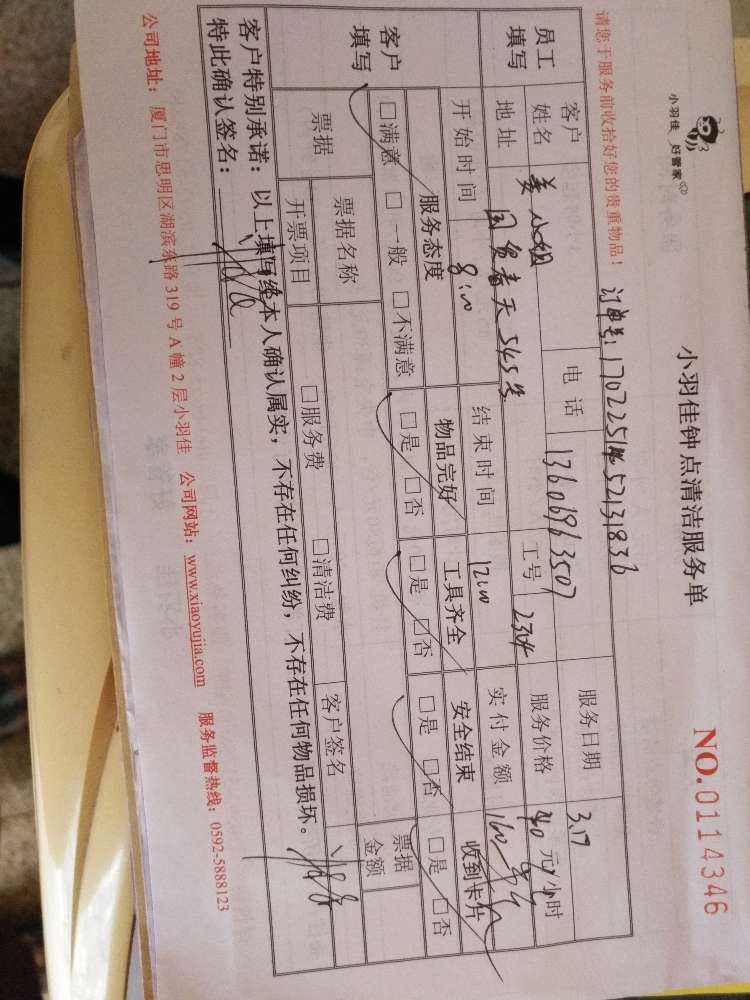 小羽佳 好管家
小羽佳钟点清洁服务单
NO.0114346
请您于服务前收拾好您的贵重物品!
订单号:
员工填写
客户姓名 姜小姐 电话 13606963507 服务日期 3.17
地址 国贸春天 545号 工号 2304 服务价格 40元/小时
开始时间 8:00 结束时间 12:00 实付金额 160
客户填写
服务态度 物品完好 工具齐全 安全结束 收到卡片
□满意 □一般 □不满意 □是 □否 □是 □否 □是 □否 □是 □否
票据 票据名称 客户签名 票据金额
开票项目 □服务费 □清洁费
客户特别承诺:以上填写经本人确认属实,不存在任何纠纷,不存在任何物品损坏。
特此确认签名:
公司地址:厦门市思明区湖滨东路319号A幢2层小羽佳 公司网站:www.xiaoyujia.com 服务监督热线:0592-5888123